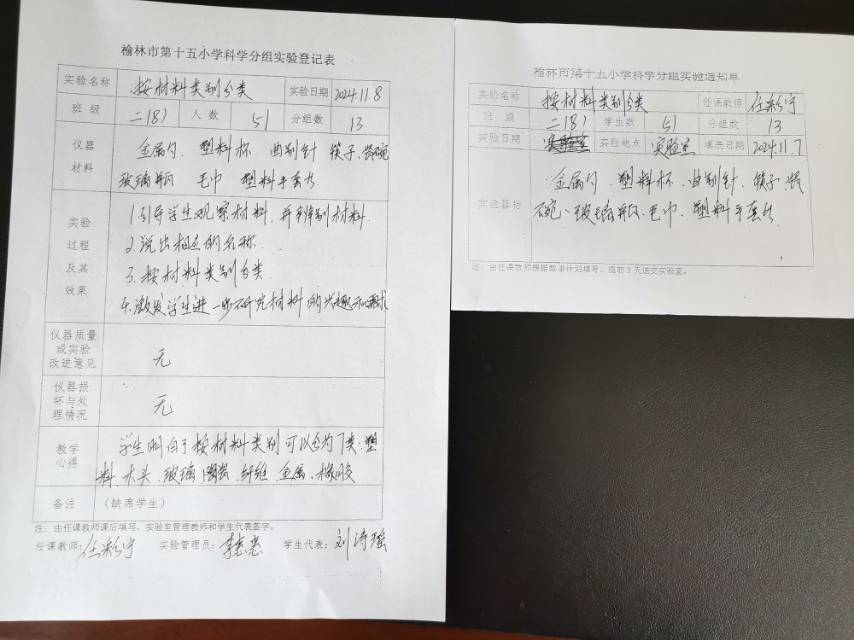 榆林市第十五小学科学分组实验登记表
实验名称 按材料类别分类 实验日期 2024.11.8
班级 二(8) 人数 51 分组数 13
仪器材料 金属勺 塑料杯 曲别针 筷子 瓷碗
玻璃瓶 毛巾 塑料手套
实验过程及其效果 1.引导学生观察材料,并辨别材料
2.说出相应的名称
3.按材料类别分类
4.激发学生进一步研究材料的兴趣和
仪器质量或实验改进意见 无
仪器损坏与处理情况 无
教学心得 学生明白了按材料类别可以分为7类:塑
料、木头、玻璃、陶瓷、纤维、金属、橡胶
备注 (缺席学生)
注:由任课教师课后填写、实验室管理教师和学生代表签字。
任课教师: 实验管理员: 学生代表:
榆林市第十五小学科学分组实验通知单
实验名称 按材料类别分类 任课教师
班级 二(8) 学生数 51 分组数 13
实验日期 实验地点 实验室 填表日期 2024.11.7
实验器材 金属勺、塑料杯、曲别针、筷子、瓷
碗、玻璃瓶、毛巾、塑料手套
注:由任课教师根据教学计划填写,提前3天送交实验室。